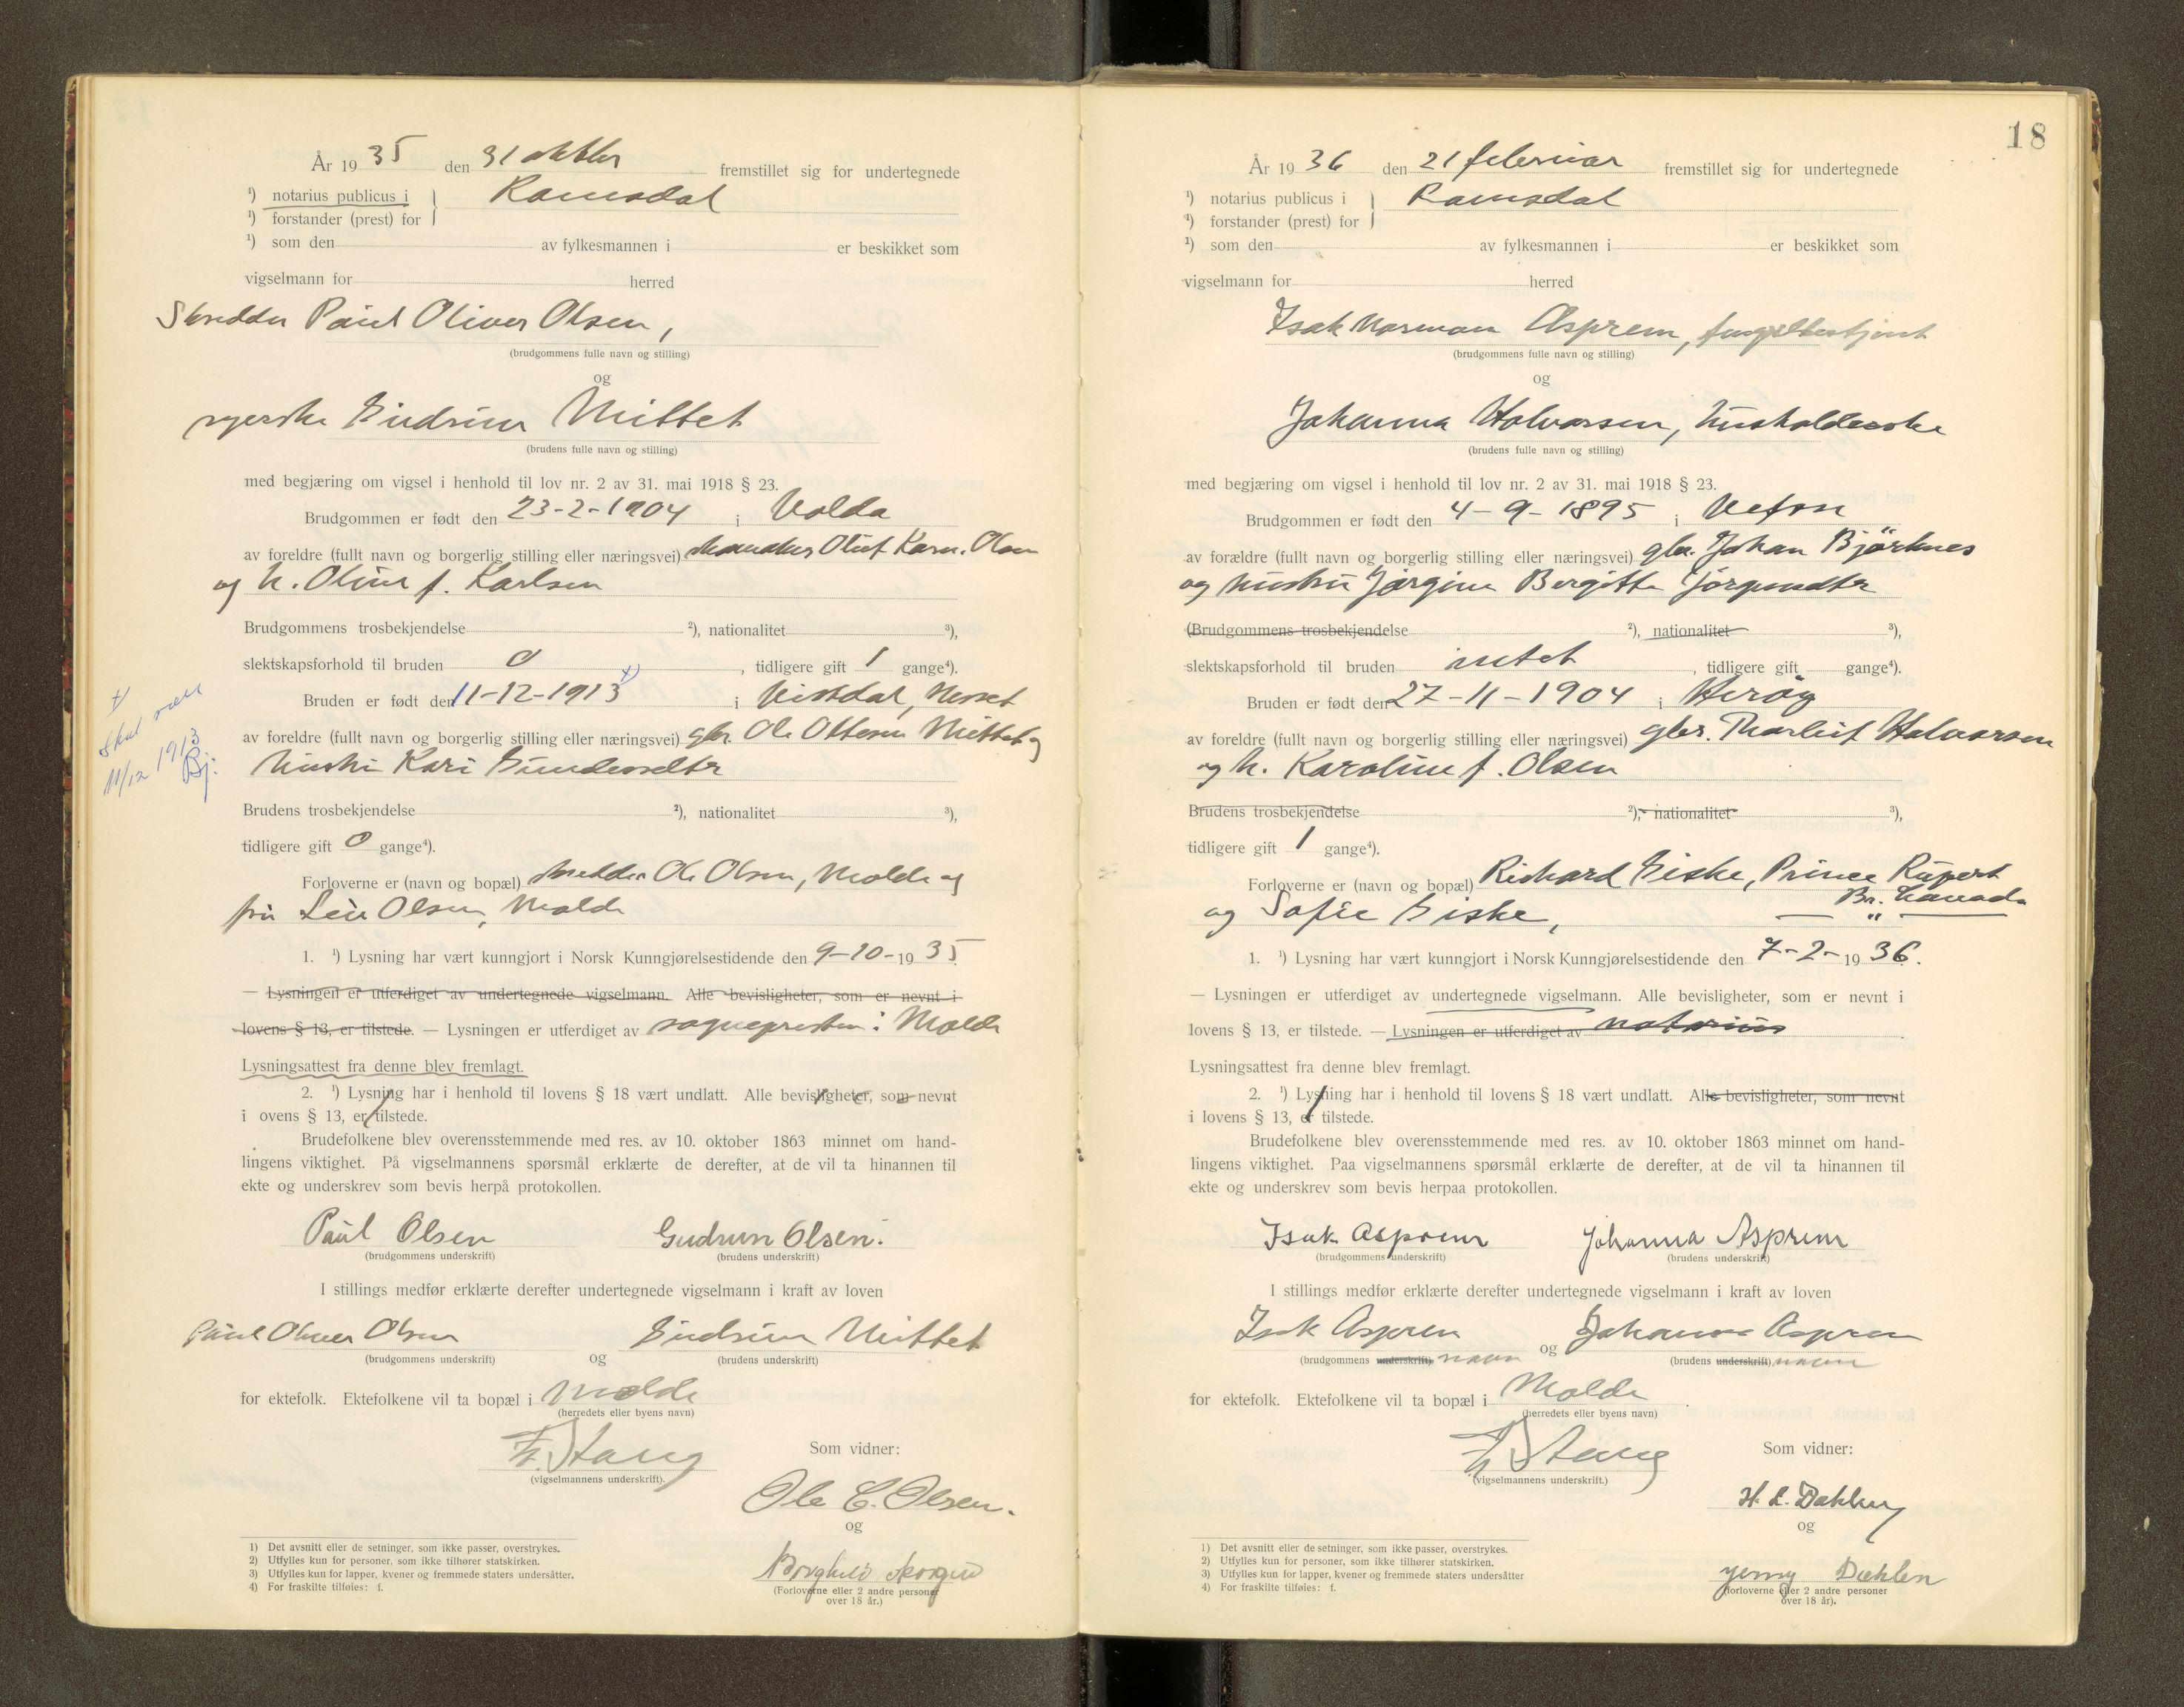 År 19 35 den 31 oktbr fremstillet sig for undertegnede
¹) notarius publicus i } Romsdal
¹) forstander (prest) for
¹) som den av fylkesmannen i er beskikket som
vigselmann for herred
Skredder Paul Oliver Olsen,
(brudgommens fulle navn og stilling)
og
syerske Gudrun Mittet
(brudens fulle navn og stilling)
med begjæring om vigsel i henhold til lov nr. 2 av 31. mai 1918 § 23.
Brudgommen er født den 23-2-1904 i Volda
av foreldre (fullt navn og borgerlig stilling eller næringsvei) Oluf Olsen
og h. Oline f. Karlsen
Brudgommens trosbekjendelse ²), nationalitet ³),
slektskapsforhold til bruden 0, tidligere gift 1 gange⁴).
Bruden er født den 11-12-1913 +) i Vistdal, Nesset
av foreldre (fullt navn og borgerlig stilling eller næringsvei) gbr. Ole Ottesen Mittet og
hustru Kari Gundersdtr
+)
skal være
11/12 1913
Bj.
Brudens trosbekjendelse ²), nationalitet ³),
tidligere gift 0 gange⁴).
Forloverne er (navn og bopæl) skredder Ole Olsen, Molde og
fru Olsen, Molde
1. ¹) Lysning har vært kunngjort i Norsk Kunngjørelsestidende den 9-10-19 35.
— Lysningen er utferdiget av undertegnede vigselmann. Alle bevisligheter, som er nevnt i
lovens § 13, er tilstede. — Lysningen er utferdiget av sognepresten i Molde
Lysningsattest fra denne blev fremlagt.
2. ¹) Lysning har i henhold til lovens § 18 vært undlatt. Alle bevisligheter, som nevnt
i ovens § 13, er tilstede.
Brudefolkene blev overensstemmende med res. av 10. oktober 1863 minnet om hand-
lingens viktighet. På vigselmannens spørsmål erklærte de derefter, at de vil ta hinannen til
ekte og underskrev som bevis herpå protokollen.
Paul Olsen Gudrun Olsen.
(brudgommens underskrift) (brudens underskrift)
I stillings medfør erklærte derefter undertegnede vigselmann i kraft av loven
Paul Oliver Olsen og Gudrun Mittet
(brudgommens underskrift) (brudens underskrift)
for ektefolk. Ektefolkene vil ta bopæl i Molde
(herredets eller byens navn)
Stang
(vigselmannens underskrift).
Som vidner:
Ole C. Olsen.
og
Borghild
(Forloverne eller 2 andre personer
over 18 år.)
1) Det avsnitt eller de setninger, som ikke passer, overstrykes.
2) Utfylles kun for personer, som ikke tilhører statskirken.
3) Utfylles kun for lapper, kvener og fremmede staters undersåtter.
4) For fraskilte tilføies: f.
18
År 19 36 den 21 februar fremstillet sig for undertegnede
¹) notarius publicus i } Romsdal
¹) forstander (prest) for
¹) som den av fylkesmannen i er beskikket som
vigselmann for herred
Isak Norman Asprem, fengselbetjent
(brudgommens fulle navn og stilling)
og
Johanna Halvorsen, husholderske
(brudens fulle navn og stilling)
med begjæring om vigsel i henhold til lov nr. 2 av 31. mai 1918 § 23.
Brudgommen er født den 4-9-1895 i Vefsn
av forældre (fullt navn og borgerlig stilling eller næringsvei) gbr. Johan Björknes
og hustru Jørgine Bergitte Jørgensdtr
(Brudgommens trosbekjendelse ²), nationalitet ³),
slektskapsforhold til bruden intet, tidligere gift gange⁴).
Bruden er født den 27-11-1904 i Herøy
av foreldre (fullt navn og borgerlig stilling eller næringsvei) gbr. Thorleif Halvorsen
og h. Karoline f. Olsen
Brudens trosbekjendelse ²), nationalitet ³),
tidligere gift 1 gange⁴).
Forloverne er (navn og bopæl) Richard Giske, Prince Rupert
Br. Canada
og Sofie Giske, — " —
1. ¹) Lysning har vært kunngjort i Norsk Kunngjørelsestidende den 7-2-19 36.
— Lysningen er utferdiget av undertegnede vigselmann. Alle bevisligheter, som er nevnt i
lovens § 13, er tilstede. — Lysningen er utferdiget av notarius
Lysningsattest fra denne blev fremlagt.
2. ¹) Lysning har i henhold til lovens § 18 vært undlatt. Alle bevisligheter, som nevnt
i lovens § 13, er tilstede.
Brudefolkene blev overensstemmende med res. av 10. oktober 1863 minnet om hand-
lingens viktighet. Paa vigselmannens spørsmål erklærte de derefter, at de vil ta hinannen til
ekte og underskrev som bevis herpaa protokollen.
Isak Asprem Johanna Asprem
(brudgommens underskrift) (brudens underskrift)
I stillings medfør erklærte derefter undertegnede vigselmann i kraft av loven
Isak Asprem og Johanna Asprem
(brudgommens underskrift) navn (brudens underskrift) navn
for ektefolk. Ektefolkene vil ta bopæl i Molde.
(herredets eller byens navn)
Stang
(vigselmannens underskrift.)
Som vidner:
H. L. Dahlen
og
Jenny Dahlen
(forloverne eller 2 andre personer
over 18 år).
1) Det avsnitt eller de setninger, som ikke passer, overstrykes.
2) Utfylles kun for personer, som ikke tilhører statskirken.
3) Utfylles kun for lapper, kvener og fremmede staters undersåtter
4) For fraskilte tilføies: f.